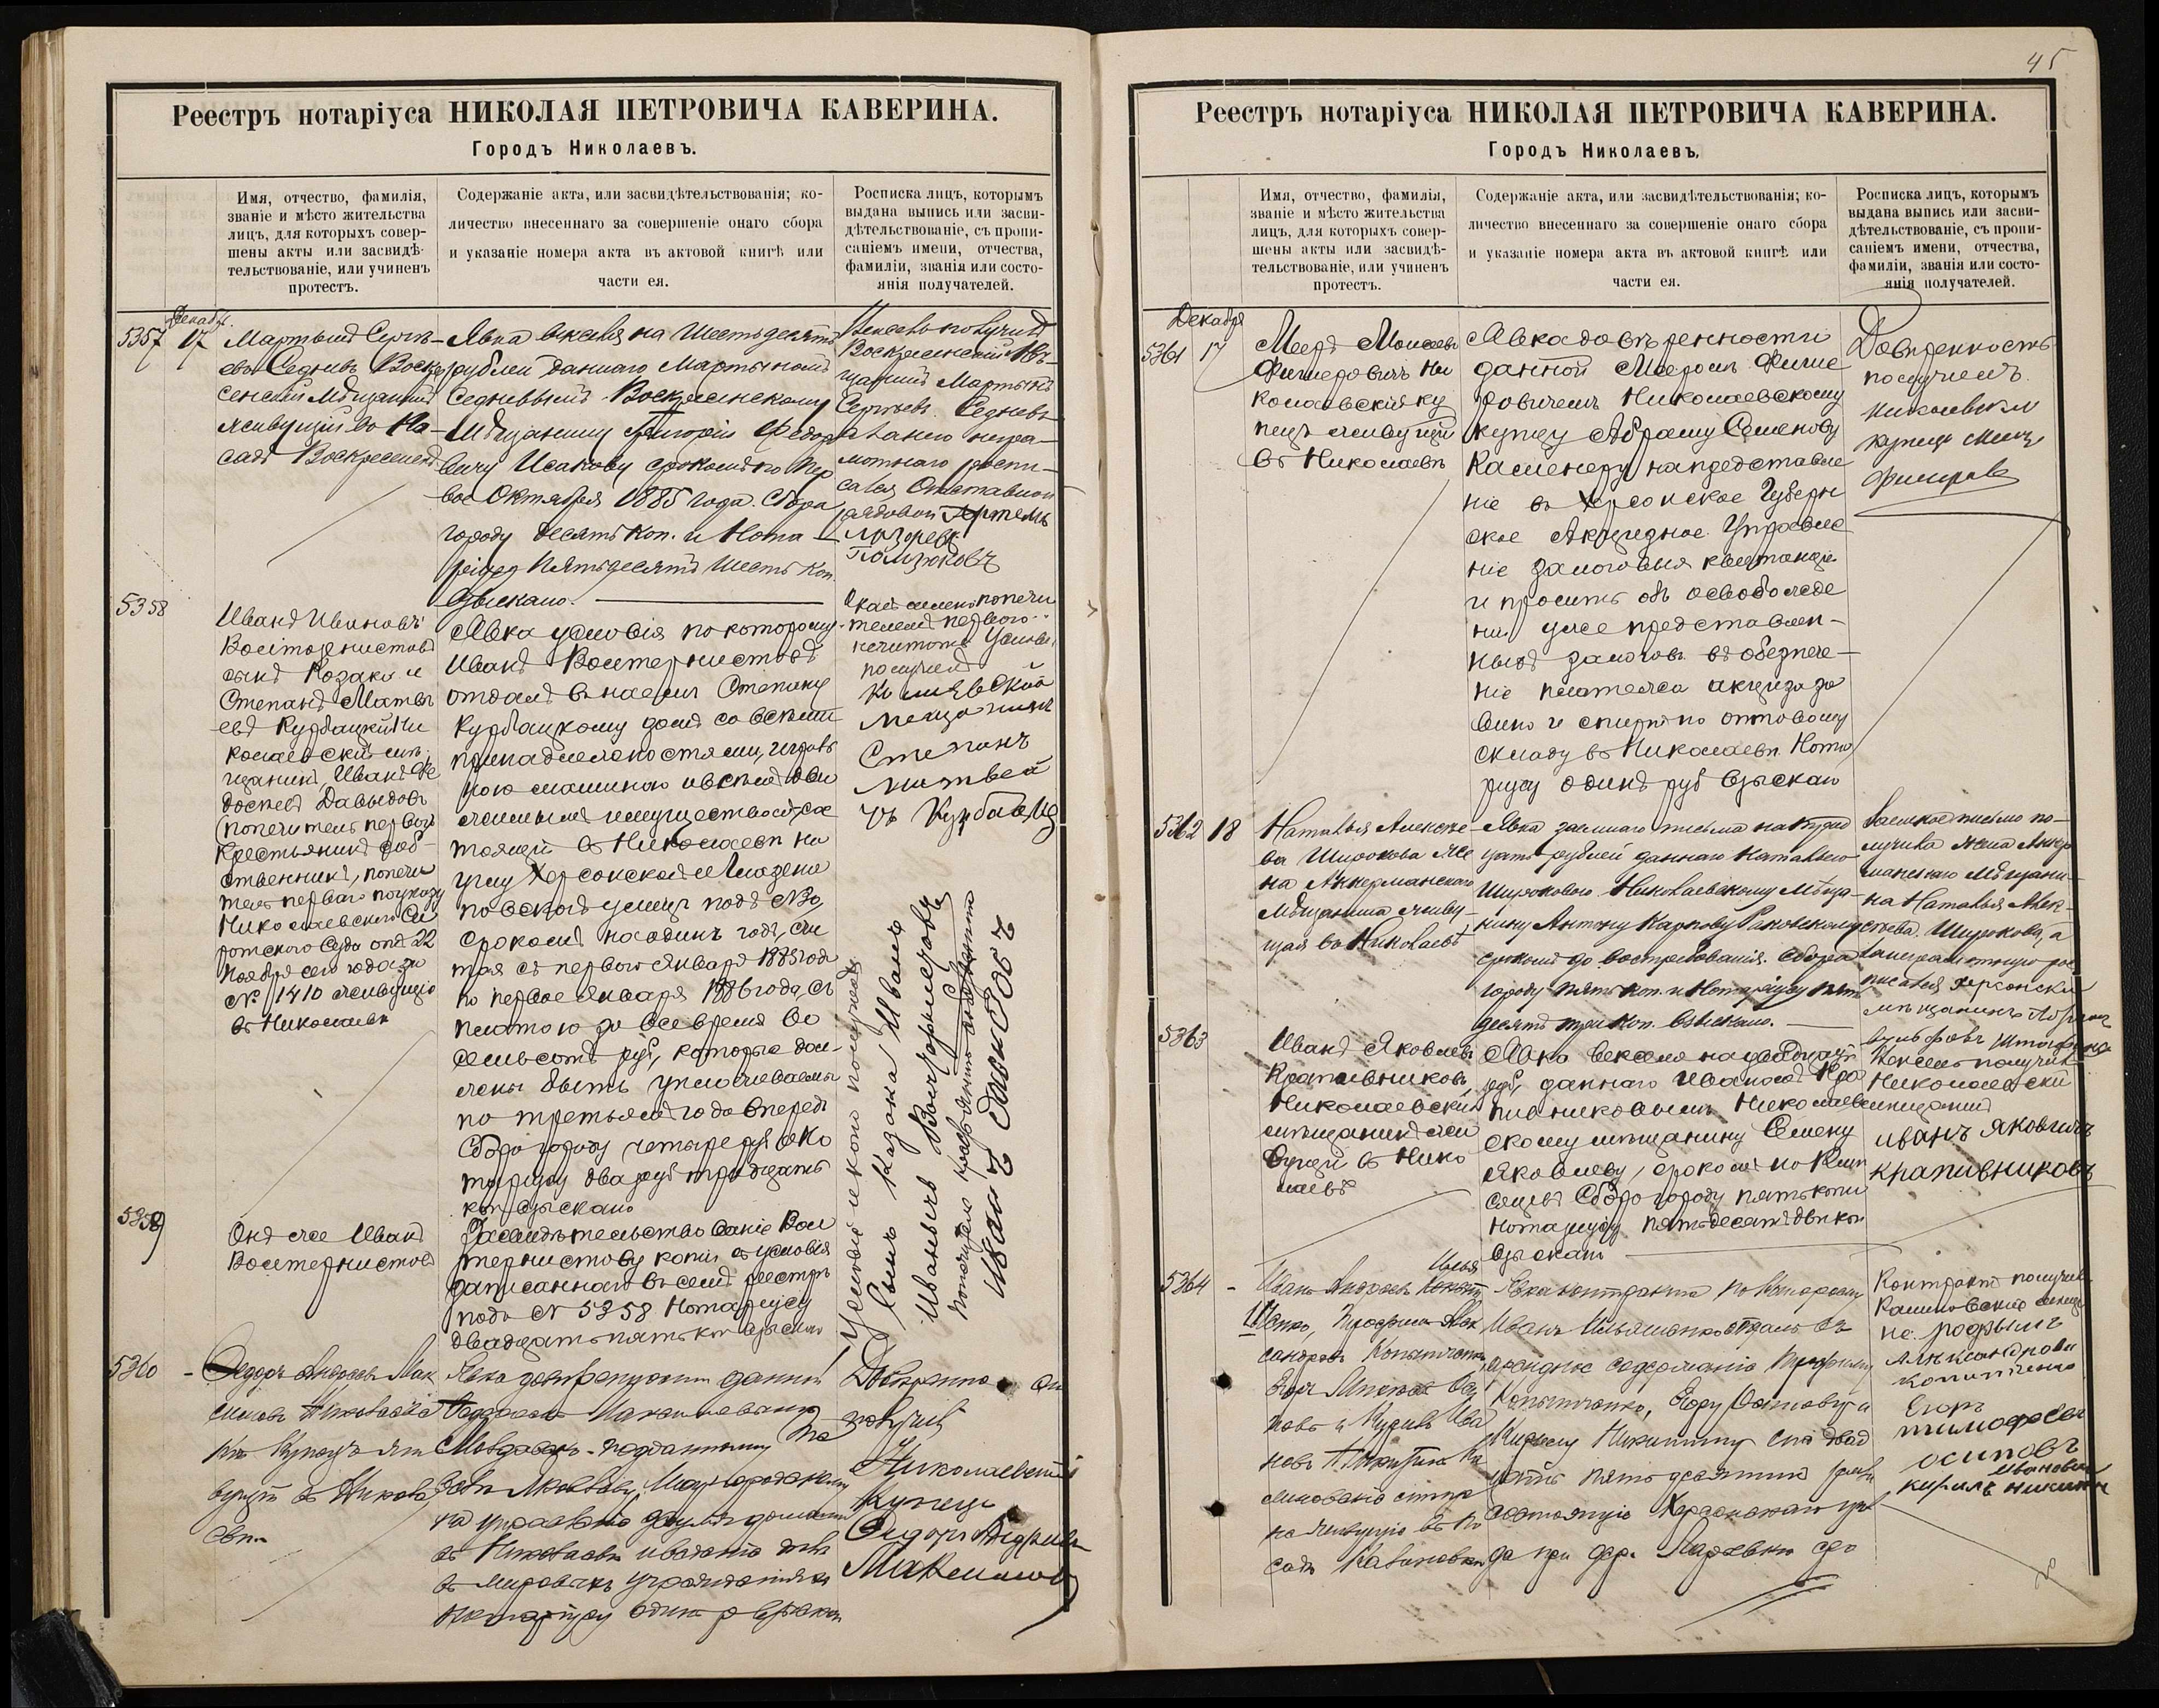 Реестръ нотаріуса НИКОЛАЯ ПЕТРОВИЧА КАВЕРИНА.
Городъ Николаевъ.
Имя, отчество, фамилія,
званіе и мѣсто жительства
лицъ, для которыхъ совер-
шены акты или засвидѣ-
тельствованіе, или учиненъ
протестъ.
Содержаніе акта, или засвидѣтельствованія; ко-
личество внесеннаго за совершеніе онаго сбора
и указаніе номера акта въ актовой книгѣ или
части ея.
Росписка лицъ, которымъ
выдана выпись или засви-
дѣтельствованіе, съ пропи-
саніемъ имени, отчества,
фамиліи, званія или состо-
янія получателей.
Декабр.
5357 17
Мартынъ Сергѣ-
евъ Седневъ Воскре
сенскій Мѣщанинъ
живущій во По-
садѣ Воскресенскъ
Явка векселя на Шестьдесятъ
рублей даннаго Мартыномъ
Седневымъ Воскресенскому
Мѣщанину Григорію Федоро
вичу Исакову срокомъ по Пер
вое Октября 1885 года. Сбора
городу десять коп. и Нота-
ріусу Пятьдесятъ Шесть коп.
взыскано.
Вексель получилъ
Воскресенскій Мѣ-
щанинъ Мартынъ
Сергѣевъ Седневъ
а за него негра-
мотнаго роспи-
сался Отставной
рядовой Артемъ
5358
Иванъ Ивановъ
Воитернистовъ
сынъ Козака и
Степанъ Матвѣ
евъ Курбацкій Ни
колаевскій мѣ-
щанинъ, Иванъ Фе
досѣевъ Давыдовъ
(попечитель перваго
Крестьянинъ соб-
ственникъ, попечи
тель перваго по указу
Николаевскаго Си
ротскаго Суда отъ 22
Ноября сего года за
№ 1410 живущіе
въ Николаевѣ
Явка условія по которому
Иванъ Воитернистовъ
отдалъ въ наемъ Степану
Курбацкому домъ со всѣми
принадлежностями, паров
рою машиною и всѣмъ дви
жимымъ имуществомъ, со
стоящій въ Николаевѣ на
углу Херсонской и Глазена
повской улицъ подъ №
срокомъ на одинъ годъ, счи
тая съ перваго Января 1885 года
по первое Января 1886 года, съ
платою за все время во
семьсотъ руб., которые дол-
жены быть уплачиваемы
по третямъ года впередъ
Сбора городу четыре руб и Но
таріусу два руб тридцать
коп взыскано
получилъ
Степанъ
Матвеа
въ Курбацк
Условіе получилъ
Сынъ Казака Иванъ
Ивановъ Воитернистовъ
попечитель крестьянинъ собственикъ
Иванъ Давидовъ
5359
Онъ же Иванъ
Воитернистовъ
Засвидѣтельствованіе Вои
тернистову копіи съ условія
записаннаго въ семъ реестрѣ
подъ № 5358 Нотаріусу
двадцать пять коп взыскано
5360 -
Федоръ Андреевъ Мак
симовъ Николаевс
кій Купецъ жи
вущій въ Никола
евѣ
Явка довѣренности данной
Федоромъ Максимовымъ
Молдавск.-подданному
на управленіе двумя домами
въ Николаевѣ и веденіе дѣлъ
въ мировыхъ учрежденіяхъ
Нотаріусу одинъ р взыскан
Довѣренность
получилъ
Николаевскій
Купецъ
Федоръ Андреевъ
Максимовъ
45
Реестръ нотаріуса НИКОЛАЯ ПЕТРОВИЧА КАВЕРИНА.
Городъ Николаевъ.
Имя, отчество, фамилія,
званіе и мѣсто жительства
лицъ, для которыхъ совер-
шены акты или засвидѣ-
тельствованіе, или учиненъ
протестъ.
Содержаніе акта, или засвидѣтельствованія; ко-
личество внесеннаго за совершеніе онаго сбора
и указаніе номера акта въ актовой книгѣ или
части ея.
Росписка лицъ, которымъ
выдана выпись или засви-
дѣтельствованіе, съ пропи-
саніемъ имени, отчества,
фамиліи, званія или состо-
янія получателей.
Декабря
5361 17
Мееръ Моисеевъ
Фишеровичъ Ни
колаевскій ку
пецъ живущій
въ Николаевѣ
Явка довѣренности
данной Мееромъ Фише
ровичемъ Николаевскому
купцу Абраму Семенову
Каменеру на представле
ніе въ Херсонское Губерн
ское Акцизное Управле
ніе залоговыя квитанціи
и просить объ освобожде
ніи уже представлен-
ныхъ залоговъ въ обезпече-
ніе платежа акциза за
вино и спиртъ по оптовому
складу въ Николаевѣ Нота
ріусу одинъ руб взыскано
Довѣренность
получилъ
николаевски
купецъ Меер
5362 18
Наталья Алексѣе
ва Широкова же
на Аккерманскаго
Мѣщанина живу-
щая въ Николаевѣ
Явка заемнаго письма на
цать рублей даннаго Натальею
Широковою Николаевскому Мѣща-
нину Антону Карпову Раковскому
срокомъ до востребованія. Сбора
городу пять коп. и Нотаріусу пять
десятъ три коп. взыскано.
Заемное письмо по-
лучила жена Аккер
манскаго Мѣщани-
на Наталья Алек-
сѣева Широкова, а
за неграмотную рос
писался Херсонскій
мѣщанинъ
5363
Иванъ Яковлевъ
Крапивниковъ
Николаевскій
мѣщанинъ жи
вущій въ Нико
лаевѣ
Явка векселя на
руб, даннаго Иваномъ Кра
пивниковымъ Николаев
скому мѣщанину Семену
Яковлеву, срокомъ на
Сбора городу пять коп
Нотаріусу пятьдесятъ двѣ коп
взыскано
Вексель получилъ
Николаевскій
мѣщанинъ
иванъ яковлевъ
крапивниковъ
5364 -
Иванъ Андреевъ Илья
шенко, Трофимъ Алек
сандровъ Копытченко,
Егоръ Тимофеевъ Оси
повъ и Кирилъ Ива
новъ Никитинъ
живущіе въ По
садѣ Калиновкѣ
Явка контракта по которому
Иванъ Ильяшенко отдалъ въ
арендное содержаніе Трофиму
Копытченко, Егору Осипову и
Кирилу Никитину сто двад
цать пять десятинъ земли
состоящіе Херсонскаго уѣз
да при дер. Ларьевкѣ сро
Контрактъ получил
Калиновскіе
Александровъ
копитченко
Егоръ
тимофеевъ
осиповъ
Ивановъ
кирилъ никитин